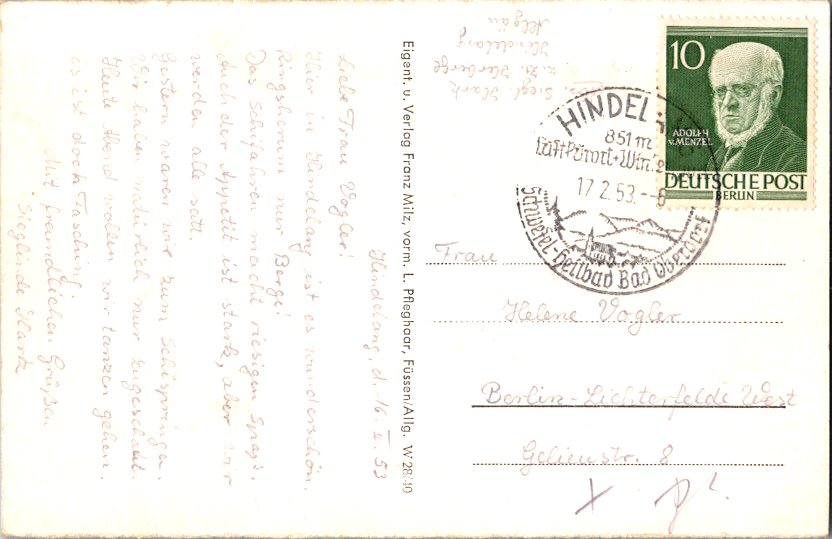 Hindelang, d. 16. II. 53
Liebe Frau Vogler!
Hier in Hindelang ist es wunderschön.
Ringsherum nur Berge!
Das Schifahren macht riesigen Spass.
Auch der Appetit ist stark, aber wir
werden alle satt.
Gestern waren wir zum Schispringen.
Wir haben natürlich nur zugeschaut.
Heute Abend wollen wir tanzen gehen.
Es ist doch Fasching!
Mit freundlichen Grüßen
Sieglinde Stark
Eigent. u. Verlag Franz Milz, vorm. L. Pfleghaar, Füssen/Allg. W 28/40
Siegl. Stark
Herberge
Hindelang
Allgäu
10
ADOLPH
v. MENZEL
DEUTSCHE POST
BERLIN
HINDEL
851 m
Luftkurort
17.2.53.-6
Schwefel-Heilbad Bad Oberdorf
Frau
Helene Vogler
Berlin-Lichterfelde West
Gelieustr. 8